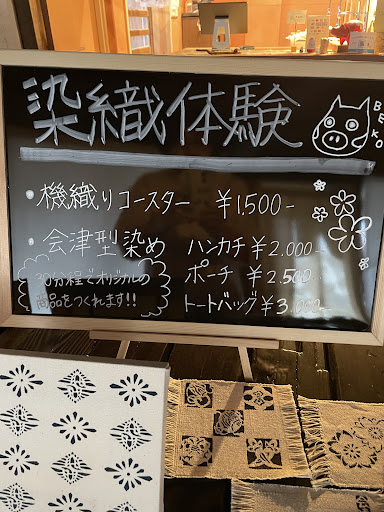 染織体験
BEKO
・機織りコースター ¥1.500-
・会津型染め ハンカチ¥2.000-
ポーチ¥2.500-
トートバッグ¥3.000-
30分程でオリジナルの
商品をつくれます!!